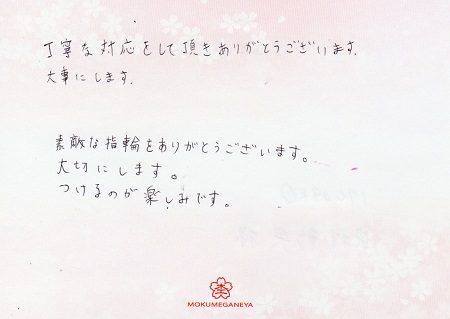 丁寧な対応をして頂きありがとうございます.
大事にします.
素敵な指輪をありがとうございます。
大切にします。
つけるのが楽しみです。
MOKUMEGANEYA